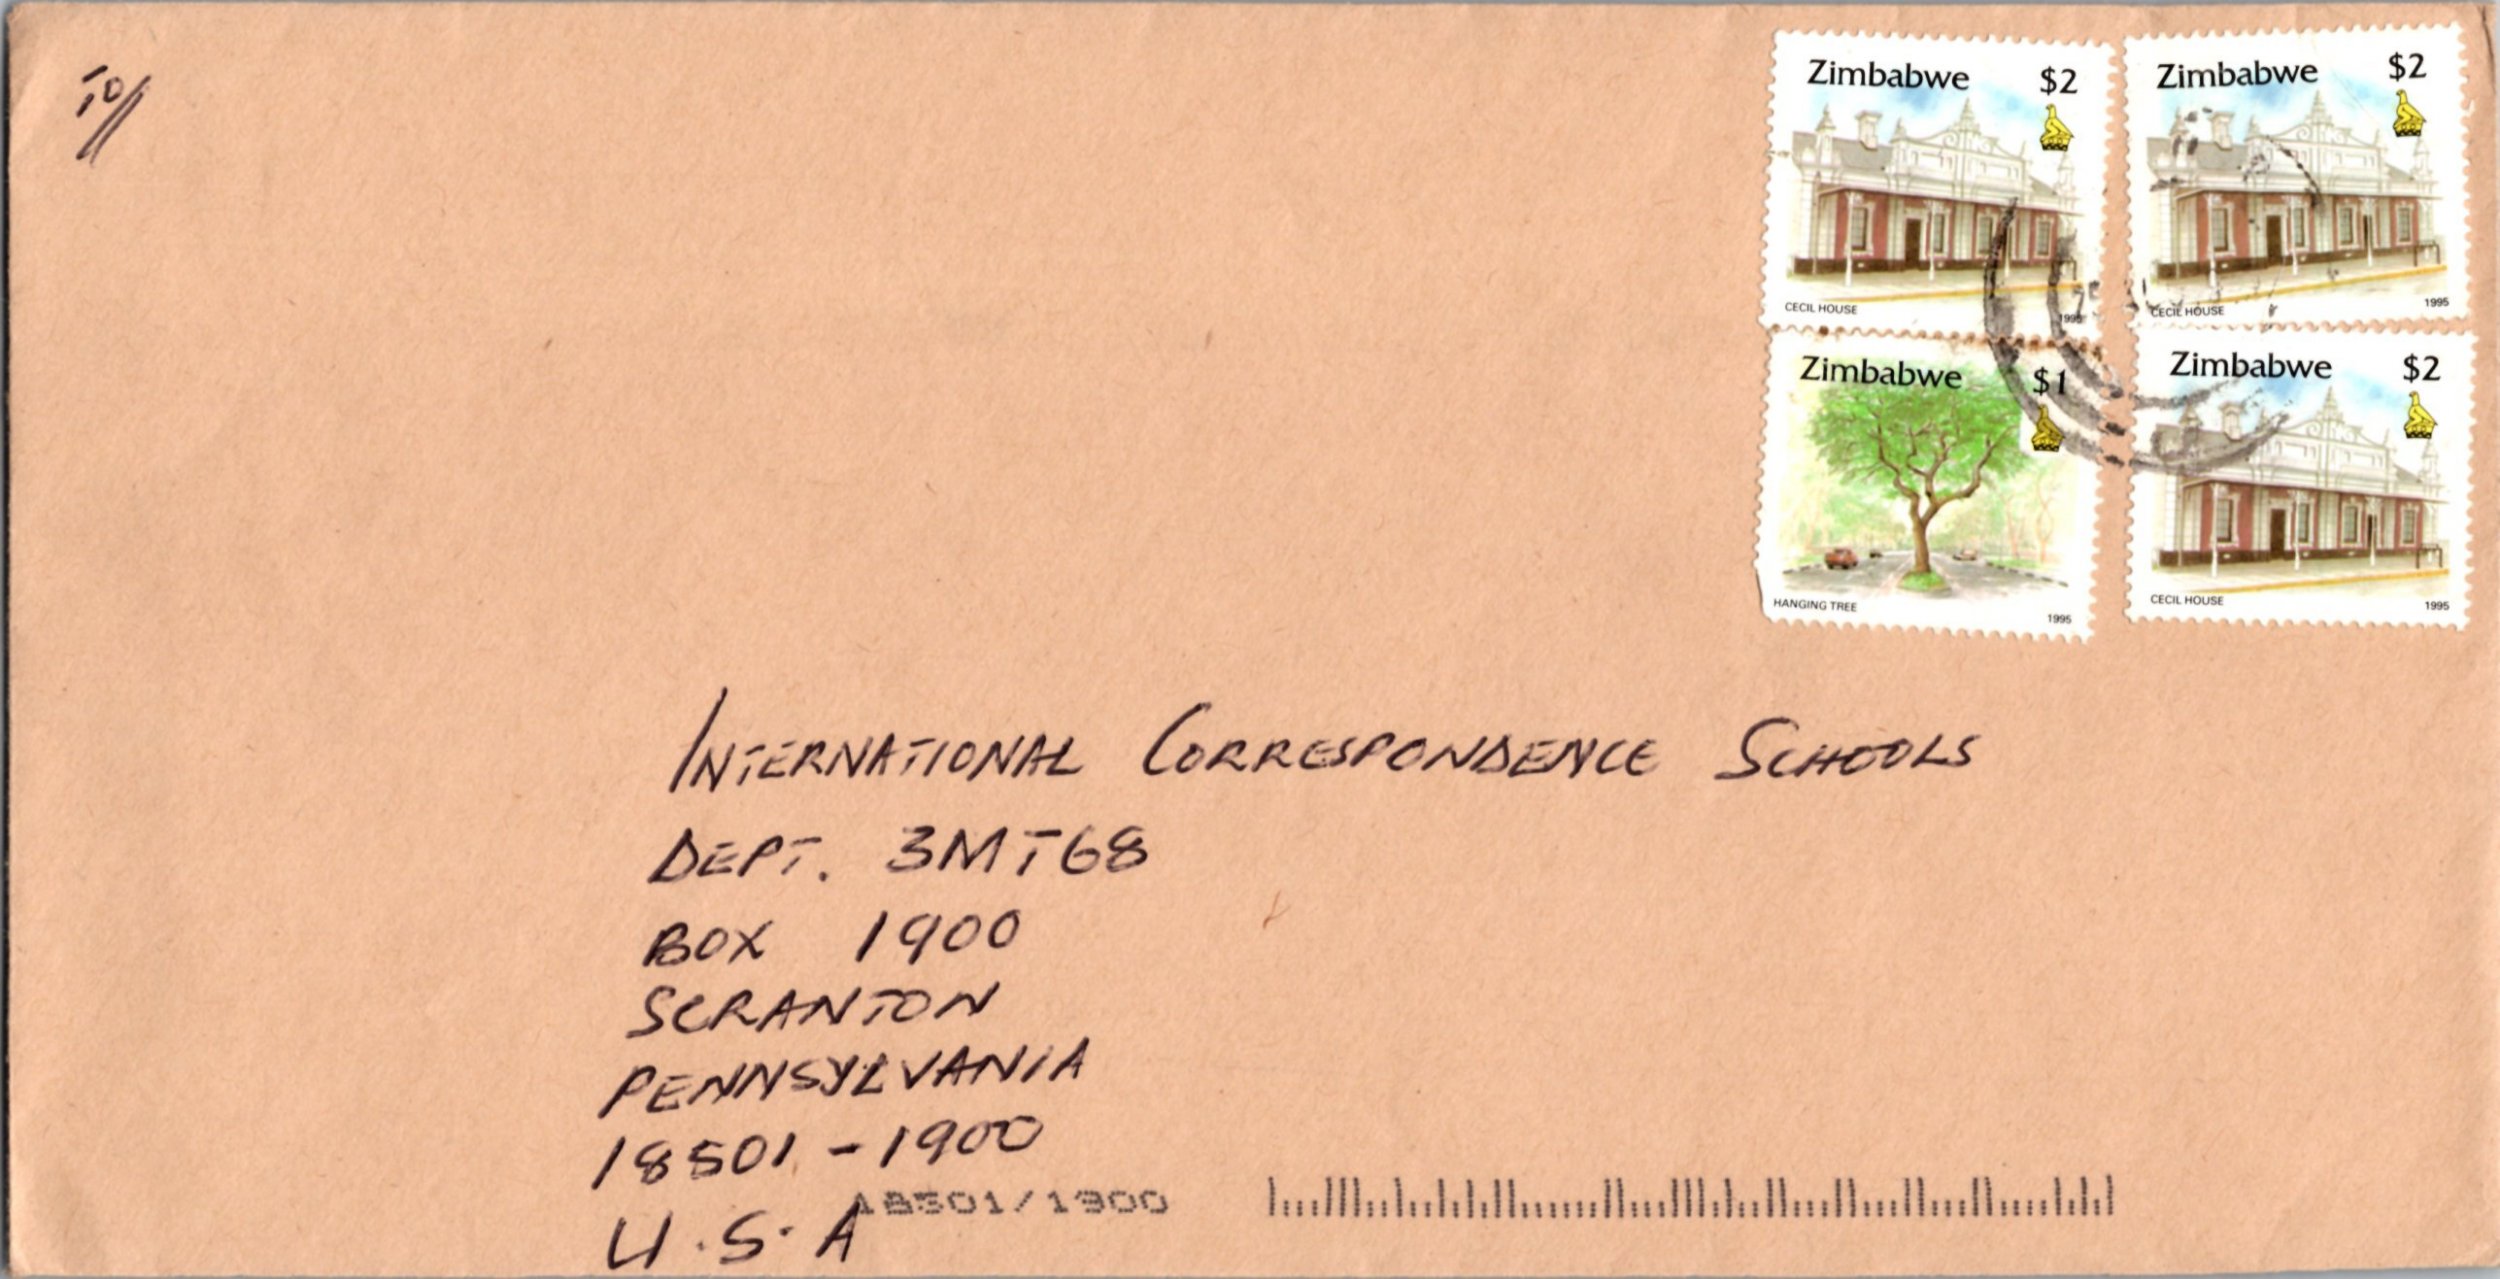 TO//
Zimbabwe $2
CECIL HOUSE 1995
Zimbabwe $2
CECIL HOUSE 1995
Zimbabwe $1
HANGING TREE 1995
Zimbabwe $2
CECIL HOUSE 1995
INTERNATIONAL CORRESPONDENCE SCHOOLS
DEPT. 3MT68
BOX 1900
SCRANTON
PENNSYLVANIA
18501-1900
18501/1900
U.S.A